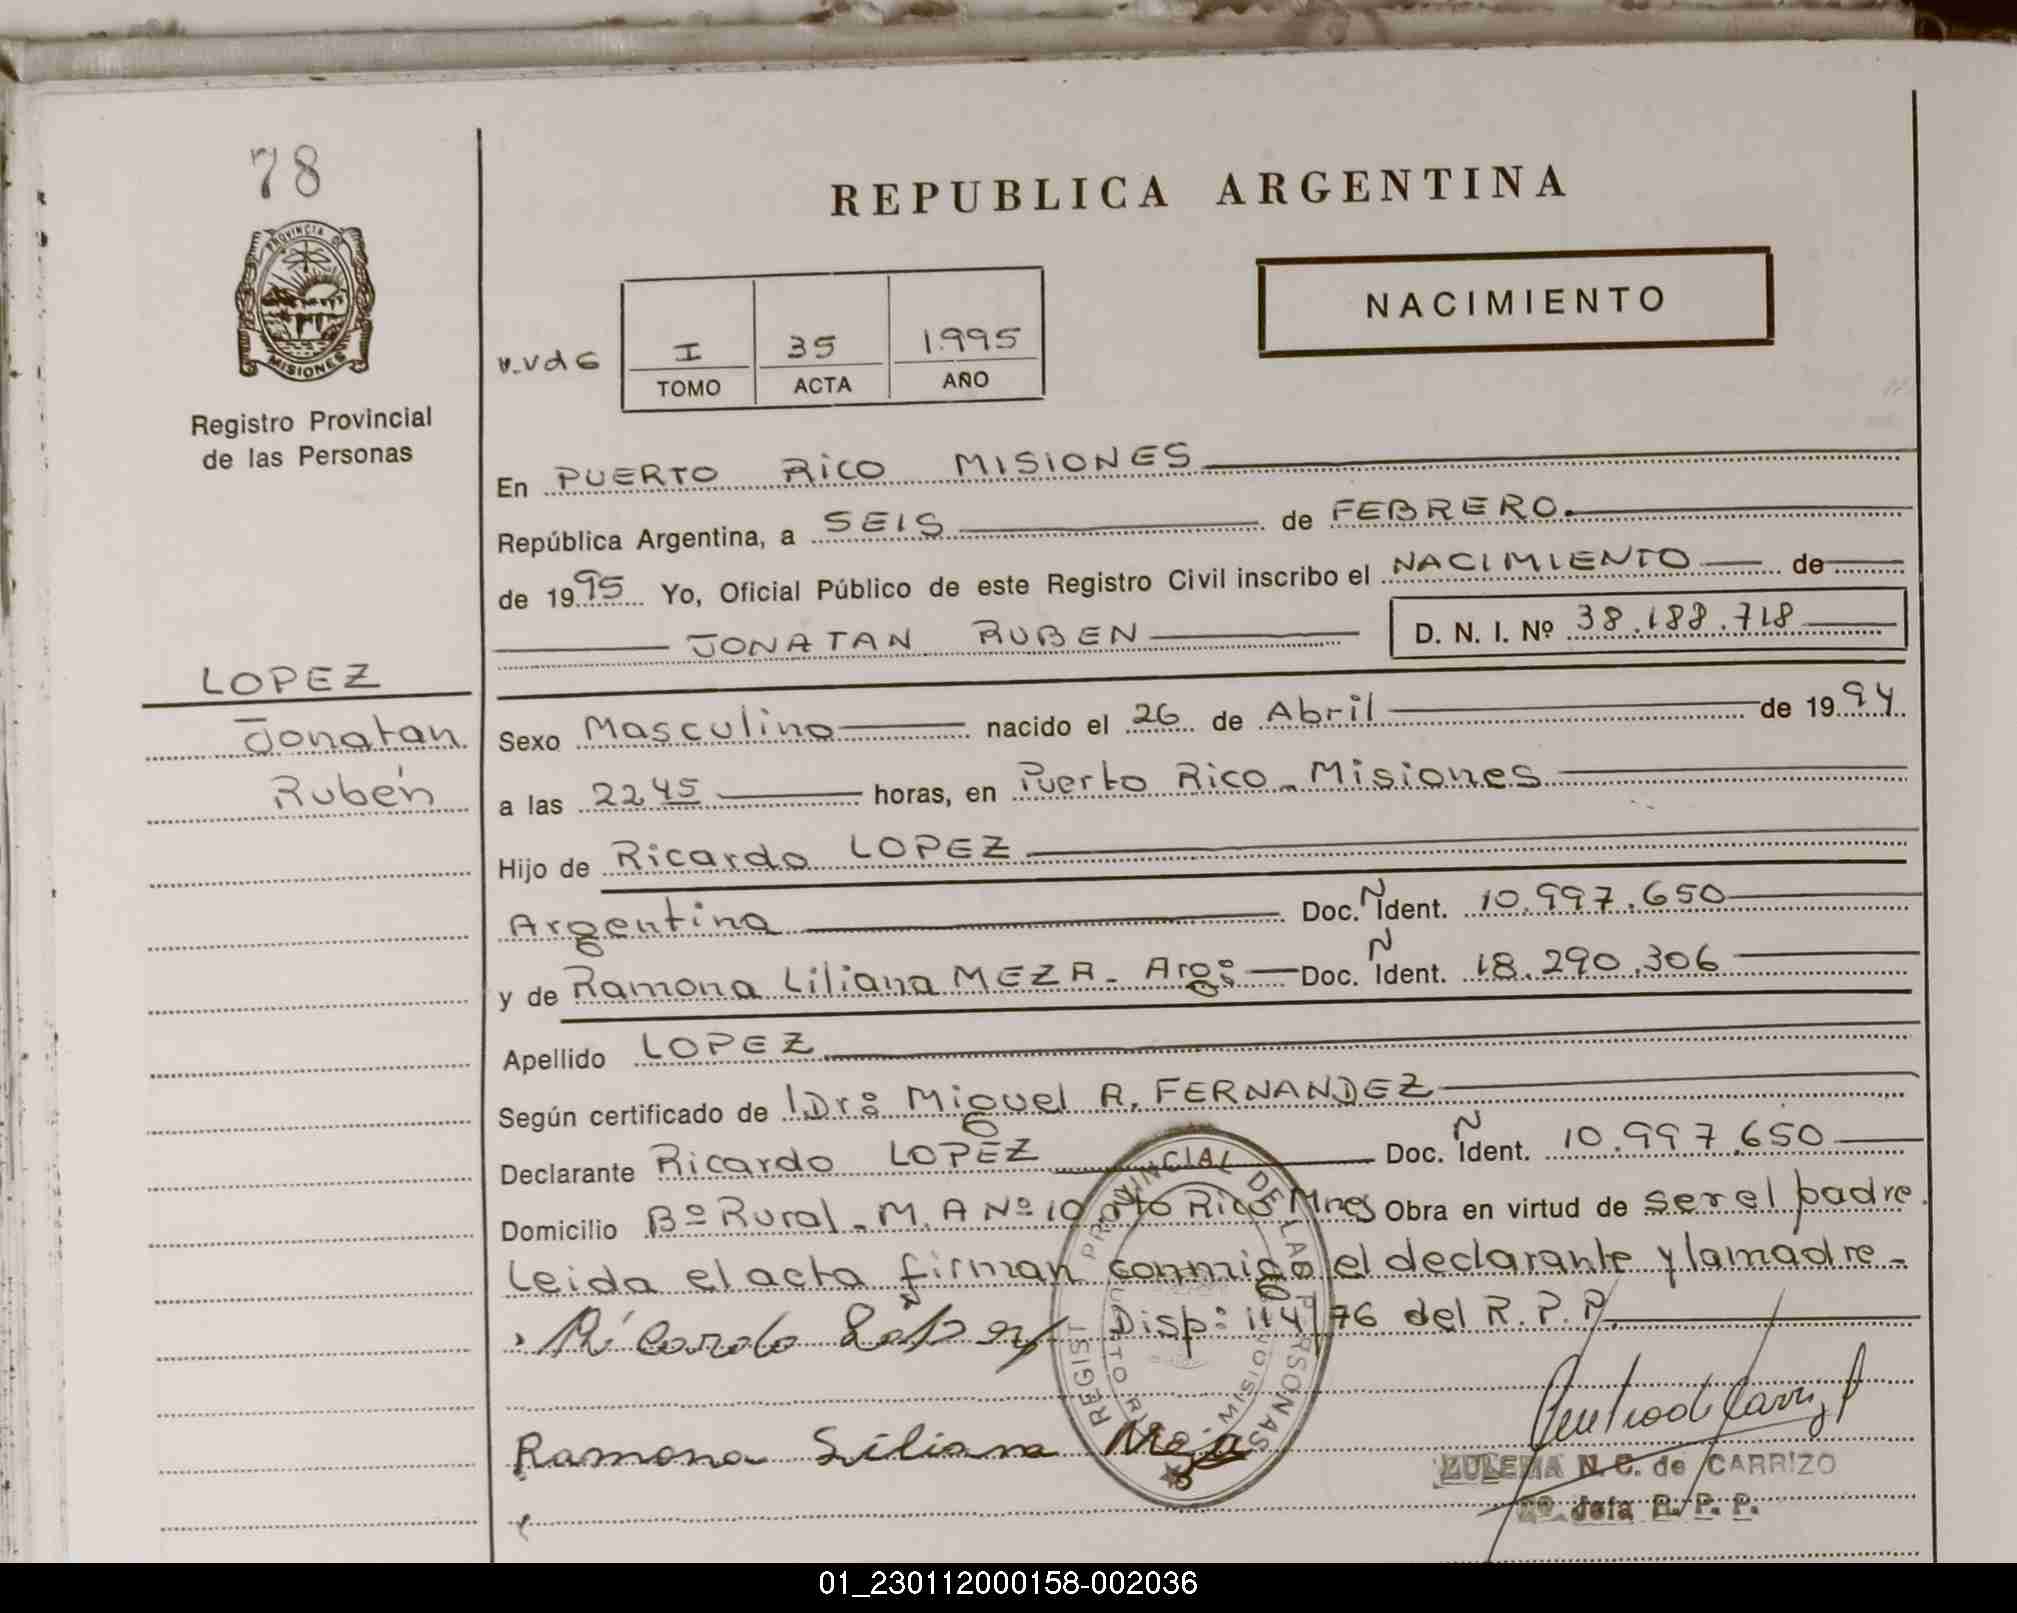 78
REPUBLICA ARGENTINA
PROVINCIA DE
MISIONES
NACIMIENTO
I 35 1995
TOMO ACTA AÑO
Registro Provincial
de las Personas
En PUERTO RICO MISIONES
República Argentina, a SEIS de FEBRERO.
de 1995 Yo, Oficial Público de este Registro Civil inscribo el NACIMIENTO de
JONATAN RUBEN D. N. I. Nº 38.188.718
LOPEZ
Jonatan
Rubén
Sexo Masculino nacido el 26 de Abril de 1994
a las 22,45 horas, en Puerto Rico - Misiones
Hijo de Ricardo LOPEZ
Argentina Doc. N Ident. 10.997.650
y de Ramona Liliana MEZA - Arg: Doc. N Ident. 18.290.306
Apellido LOPEZ
Según certificado de Dr: Miguel A. FERNANDEZ
Declarante Ricardo LOPEZ Doc. N Ident. 10.997.650
Domicilio Bº Rural - M. A Nº 10 Pto Rico Mnes Obra en virtud de ser el padre.
Leida el acta firman conmigo el declarante y la madre -
Ricardo Lopez Disp: 114/76 del R. P. P.
REGIST PROVINCIAL DE LAS PERSONAS
Ramona Liliana Meza
ZULEMA N. C. de CARRIZO
2º. Jefa R. P. P.
01_230112000158-002036